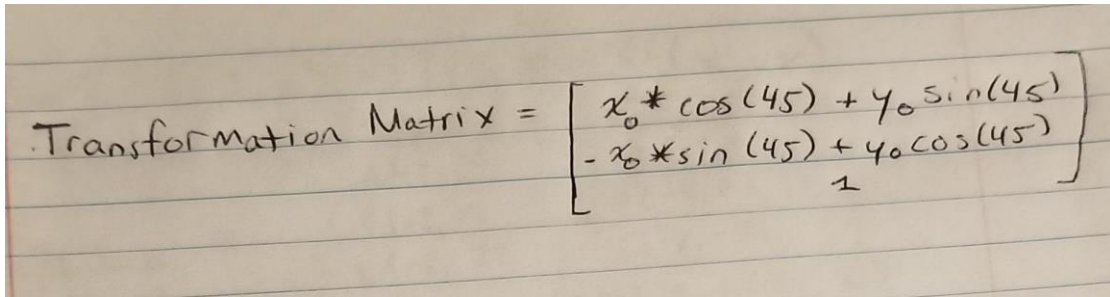 Transformation Matrix = [ x₀ * cos (45) + y₀ sin(45)
- x₀ * sin (45) + y₀ cos(45)
1 ]